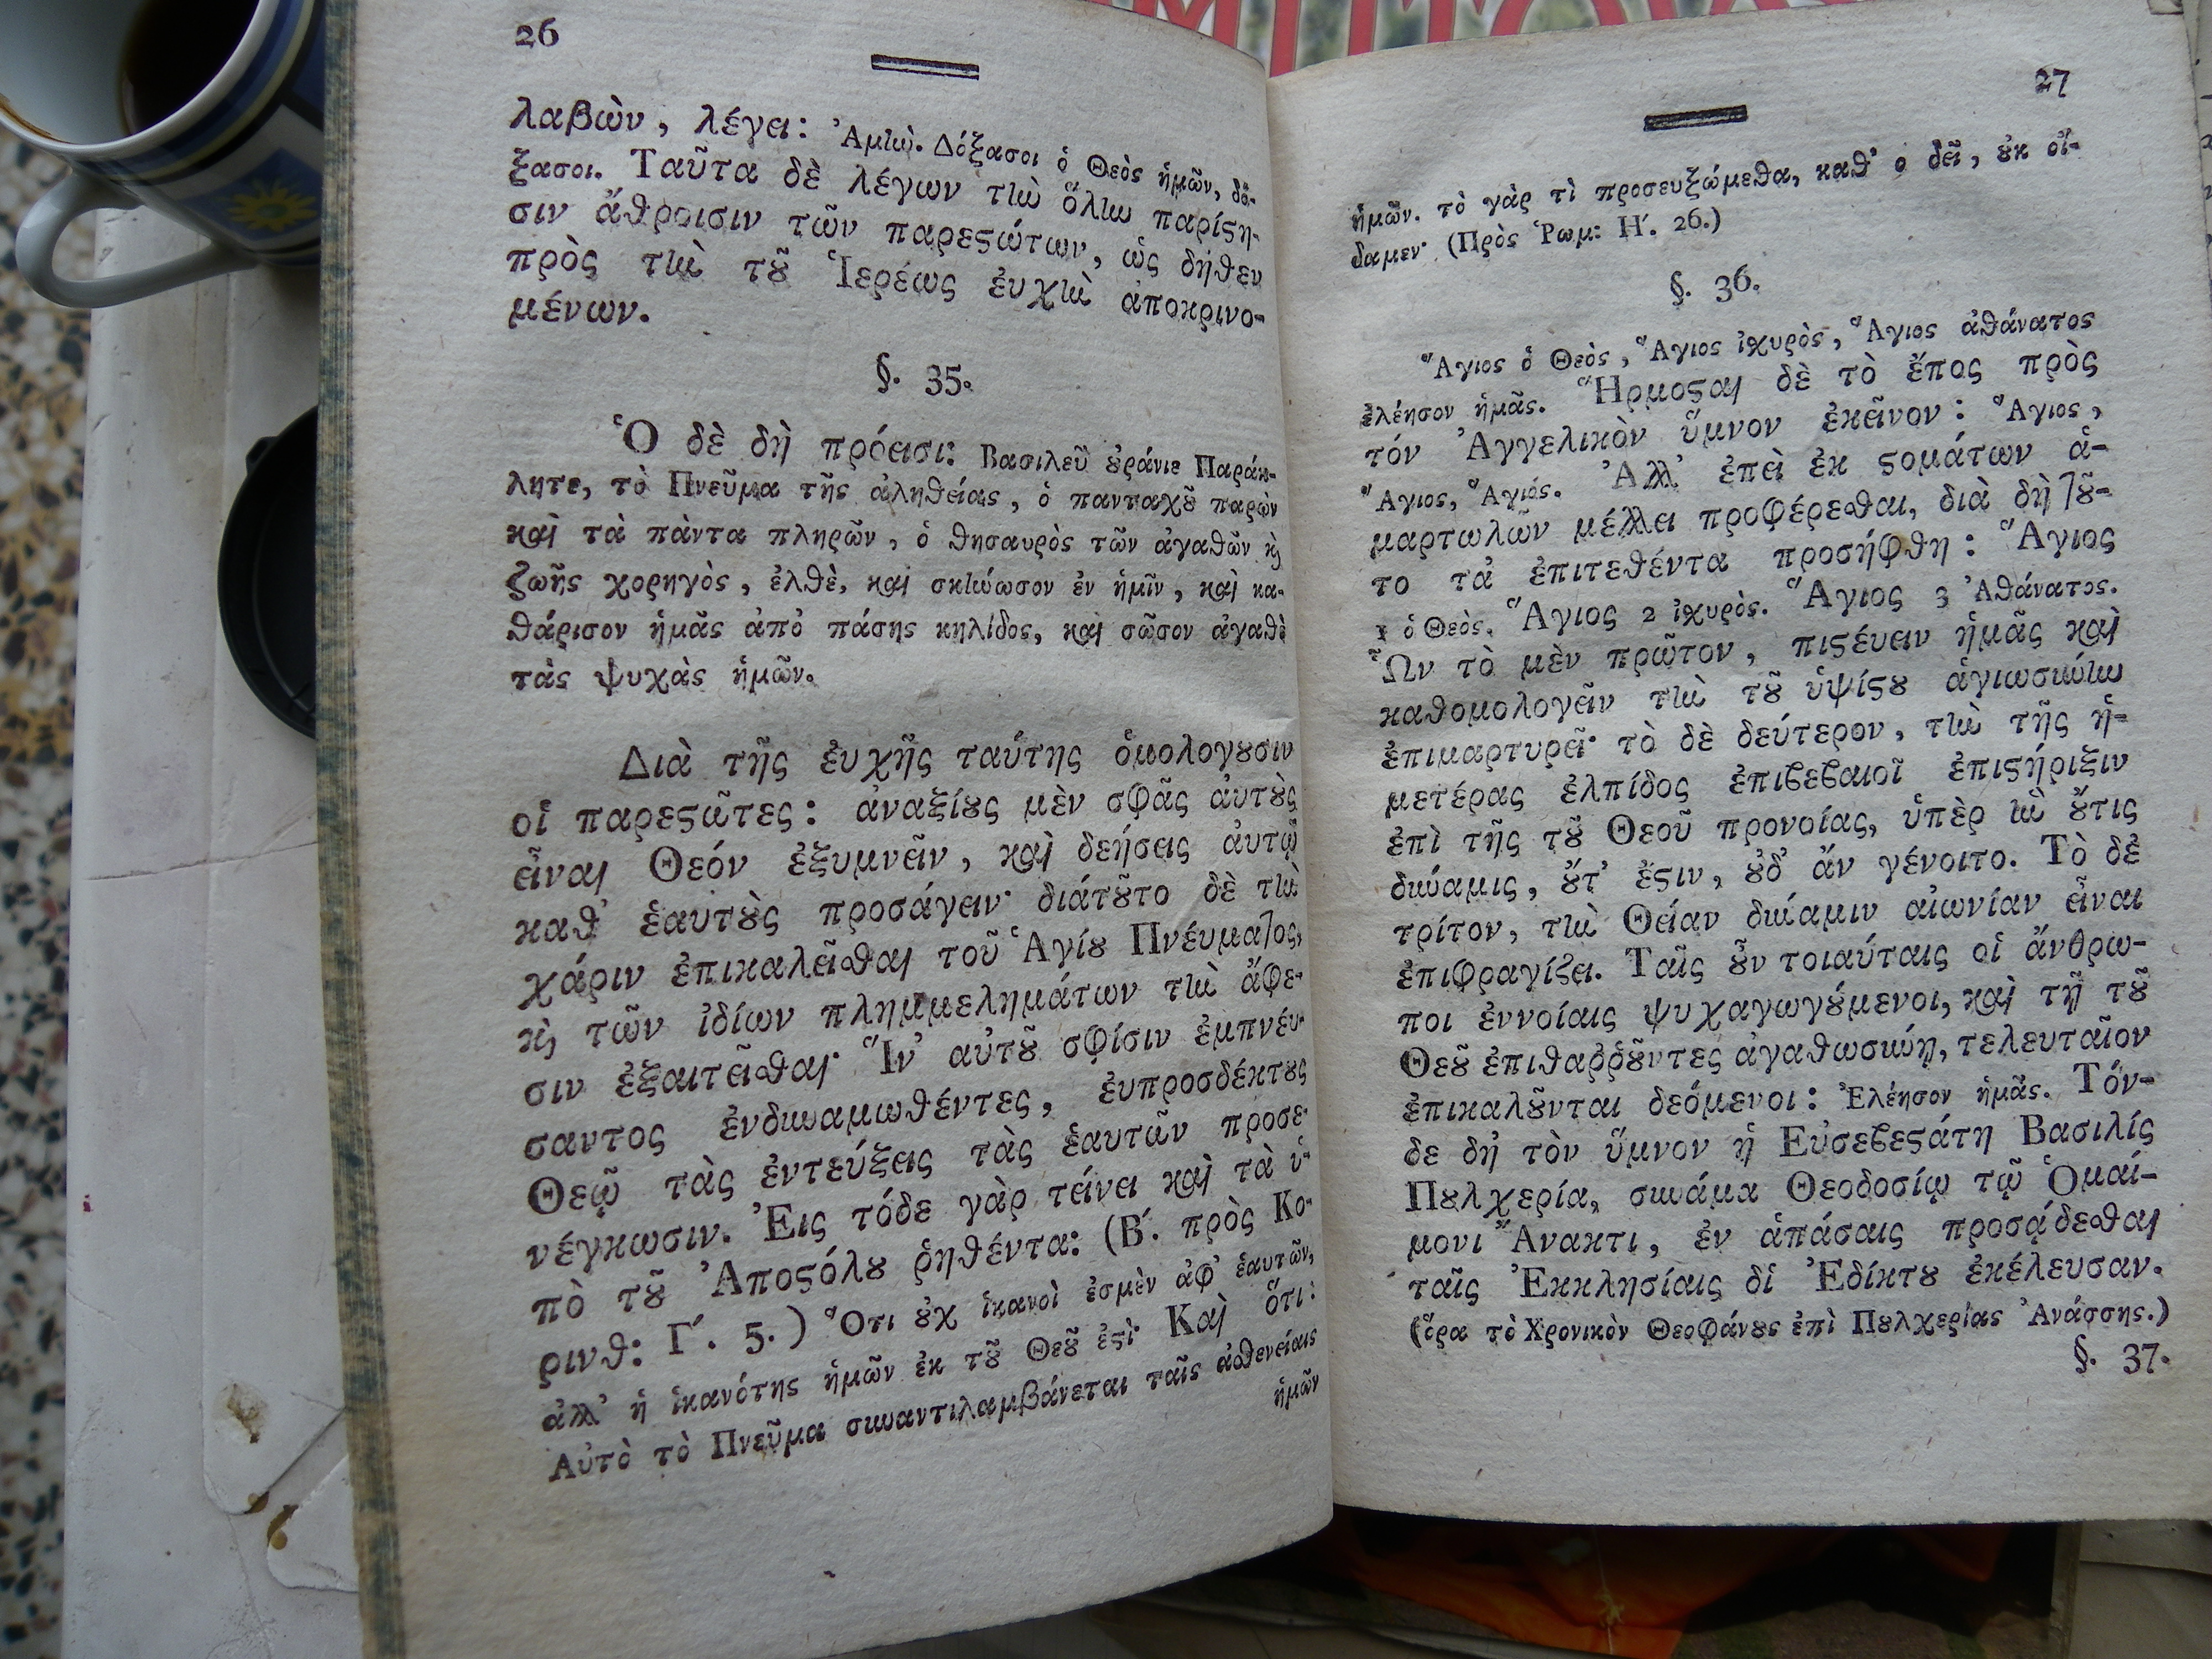 26
λαβὼν, λέγει: Ἀμὴν. Δόξασοι ὁ Θεὸς ἡμῶν, δό-
ξασοι. Ταῦτα δὲ λέγων τὴν ὅλην παρίϛη-
σιν ἄθροισιν τῶν παρεϛώτων, ὡς δῆθεν
πρὸς τὴν τȣ͂ Ἱερέως ἐυχὴν ἀποκρινο-
μένων.
§. 35.
Ὁ δὲ δὴ πρόεισι: Βασιλεῦ ȣράνιε Παράκ-
λητε, τὸ Πνεῦμα τῆς ἀληθείας, ὁ πανταχȣ͂ παρὼν
καὶ τὰ πὰντα πληρῶν, ὁ θησαυρὸς τῶν ἀγαθῶν κỳ
ζωῆς χορηγὸς, ἐλθὲ, καὶ σκήνωσον ἐν ἡμῖν, καὶ κα-
θάρισον ἡμᾶς ἀπὸ πάσης κηλίδος, καὶ σῶσον ἀγαθὲ
τὰς ψυχὰς ἡμῶν.
Διὰ τῆς ἐυχῆς ταύτης ὁμολογȣσιν
οἱ παρεϛῶτες: ἀναξίȣς μὲν σφᾶς ἀυτȣ̀ς
εἶναι Θεόν ἐξυμνεῖν, καὶ δεήσεις ἀυτῷ
καθ' ἑαυτȣ̀ς προσάγειν· διάτȣτο δὲ τὴν
χάριν ἐπικαλεῖσθαι τοῦ Ἁγίȣ Πνέυματος,
κỳ τῶν ἰδίων πλημμελημάτων τὴν ἄφε-
σιν ἐξαιτεῖσθαι· Ἵν' αὐτȣ͂ σφίσιν ἐμπνέυ-
σαντος ἐνδυναμωθέντες, ἐυπροσδέκτȣς
Θεῷ τὰς ἐντεύξεις τὰς ἑαυτῶν προσε-
νέγκωσιν. Ἐις τόδε γὰρ τείνει καὶ τὰ ὑ-
πὸ τȣ͂ Ἀποϛόλȣ ῥηθέντα: (Β΄. πρὸς Κο-
ρινθ: Γ΄. 5.) Ὅτι ȣ̓χ ἱκανοὶ ἐσμὲν ἀφ' ἑαυτῶν,
ἀλλ' ἡ ἱκανότης ἡμῶν ἐκ τȣ͂ Θεȣ͂ ἐϛὶ· Καὶ ὅτι:
Αὐτὸ τὸ Πνεῦμα συναντιλαμβάνεται ταῖς ἀσθενείαις
ἡμῶν
27
ἡμῶν. τὸ γὰρ τὶ προσευξώμεθα, καθ' ο δεῖ, ȣ̓κ οἴ-
δαμεν· (Πρὸς Ῥωμ: Η΄. 26.)
§. 36.
Ἅγιος ὁ Θεὸς, Ἅγιος ἰσχυρὸς, Ἅγιος ἀθάνατος
ἐλέησον ἡμᾶς. Ἥρμοϛαι δὲ τὸ ἔπος πρὸς
τόν Ἀγγελικὸν ὕμνον ἐκεῖνον: Ἅγιος,
Ἅγιος, Ἅγιός. Ἀλλ' ἐπεὶ ἐκ ϛομάτων ἁ-
μαρτωλῶν μέλλει προφέρεσθαι, διὰ δὴ τȣ͂-
το τἀ ἐπιτεθέντα προσήφθη: Ἅγιος
1 ὁ Θεὸς. Ἅγιος 2 ἰσχυρὸς. Ἅγιος 3 Ἀθάνατος.
Ὧν τὸ μὲν πρῶτον, πιϛέυειν ἡμᾶς καὶ
καθομολογεῖν τὴν τȣ͂ ὑψίϛȣ ἁγιωσύνην
ἐπιμαρτυρεῖ· τὸ δὲ δεύτερον, τὴν τῆς ἡ-
μετέρας ἐλπίδος ἐπιβεβαιοῖ ἐπιϛήριξιν
ἐπὶ τῆς τȣ͂ Θεοῦ προνοίας, ὑπὲρ ἣν ȣ̓́τις
δύναμις, ȣ̓́τ' ἔϛιν, ȣ̓δ' ἄν γένοιτο. Τὸ δἐ
τρίτον, τὴν Θείαν δύναμιν αἰωνίαν εἶναι
ἐπισφραγίζει. Ταῖς ȣ̓͂ν τοιαύταις οἱ ἄνθρω-
ποι ἐννοίαις ψυχαγωγȣ́μενοι, καὶ τῇ τȣ͂
Θεȣ͂ ἐπιθαῤῥȣ͂ντες ἀγαθωσύνῃ, τελευταῖον
ἐπικαλȣ͂νται δεόμενοι: Ἐλέησον ἡμᾶς. Τόν-
δε δὴ τὸν ὕμνον ἡ Εὐσεβεϛάτη Βασιλίς
Πȣλχερία, συνάμα Θεοδοσίῳ τῷ Ὁμαί-
μονι Ἄνακτι, ἐν ἁπάσαις προσᾴδεσθαι
ταῖς Ἐκκλησίαις δἰ Ἐδίκτȣ ἐκέλευσαν.
(ὅρα τὸ Χρονικὸν Θεοφάνȣς ἐπὶ Πȣλχερίας Ἀνάσσης.)
§. 37.